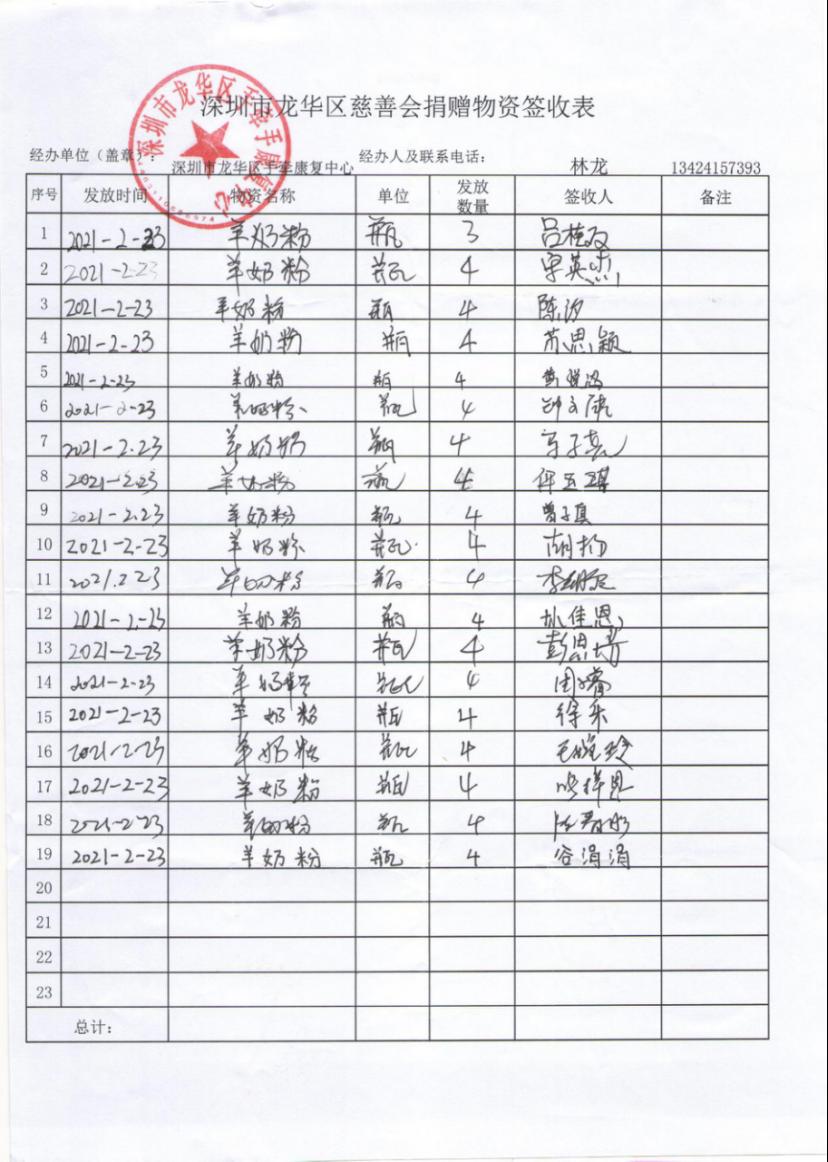 深圳市龙华区慈善会捐赠物资签收表
经办单位(盖章): 深圳市龙华区手牵康复中心 经办人及联系电话: 林龙 13424157393
序号 发放时间 物资名称 单位 发放数量 签收人 备注
1 2021-2-23 羊奶粉 瓶 3
2 2021-2-23 羊奶粉 瓶 4 宋英杰
3 2021-2-23 羊奶粉 瓶 4 陈汐
4 2021-2-23 羊奶粉 瓶 4 苏思颖
5 2021-2-23 羊奶粉 瓶 4
6 2021-2-23 羊奶粉 瓶 4
7 2021-2.23 羊奶 瓶 4
8 2021-2.23 羊奶粉 瓶 4
9 2021-2.23 羊奶粉 瓶 4 曾子真
10 2021-2-23 羊奶粉 瓶 4 胡扬
11 2021.2.23 羊奶粉 瓶 4
12 2021-2-23 羊奶粉 瓶 4 佳恩
13 2021-2-23 羊奶粉 瓶 4
14 2021-2-23 羊奶粉 瓶 4
15 2021-2-23 羊奶粉 瓶 4 徐乐
16 2021-2-23 羊奶粉 瓶 4
17 2021-2-23 羊奶粉 瓶 4
18 2021-2-23 羊奶粉 瓶 4
19 2021-2-23 羊奶粉 瓶 4 谷涓涓
20
21
22
23
总计: